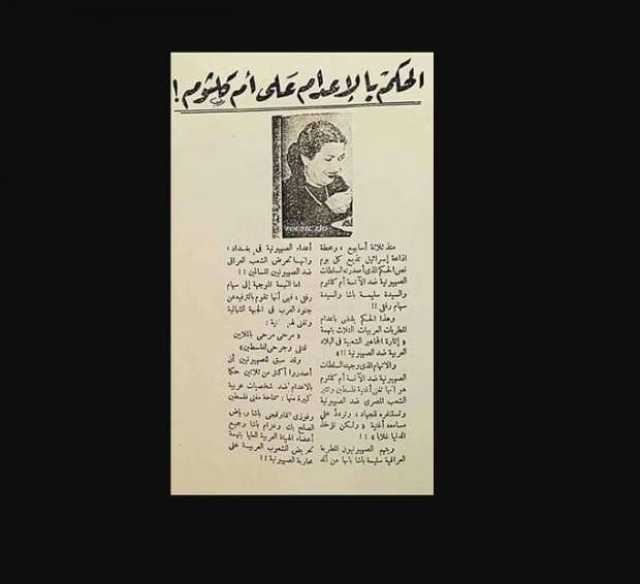 الحكم بالإعدام على أم كلثوم !
منذ ثلاثة أسابيع ، ومحطة
اذاعة إسرائيل تذيع كل يوم
نص الحكم الذى أصدرته السلطات
الصهيونية ضد الآنسة أم كلثوم
والسيدة سليمة باشا والسيدة
سهام رفقى !!
وهذا الحكم يقضى باعدام
المطربات العربيات الثلاث بتهمة
« إثارة الجماهير الشعبية فى البلاد
العربية ضد الصهيونية !! »
والاتهام الذى وجهته السلطات
الصهيونية ضد الآنسة أم كلثوم
هو أنها تغنى أغنية فلسطين وتثير
الشعب المصرى ضد الصهيونية
وتستنفره للجهاد ، وتردد على
مسامعه أغنية « ولكن تؤخذ
الدنيا غلابا » !!
ويتهم الصهيونيون المطربة
العراقية سليمة باشا بأنها من ألد
أعداء الصهيونية فى بغداد ،
وانها تحرض الشعب العراقى
ضد الصهيونيين المسالمين !!
اما التهمة الموجهة إلى سهام
رفقى ، فهى أنها تقوم بالترفيه عن
جنود العرب فى الجبهة الشمالية
وتغنى لهم
« مرحى مرحى
وقد سبق للصهيونيين أن
أصدروا أكثر من ثلاثين حكما
بالاعدام ضد شخصيات عربية
كبيرة منها : سماحة مفتى فلسطين
وفوزى القاوقجى باشا ورياض
الصلح بك وعزام باشا وجميع
أعضاء الهيئة العربية العليا بتهمة
تحريض الشعوب العربية على
محاربة الصهيونية !!